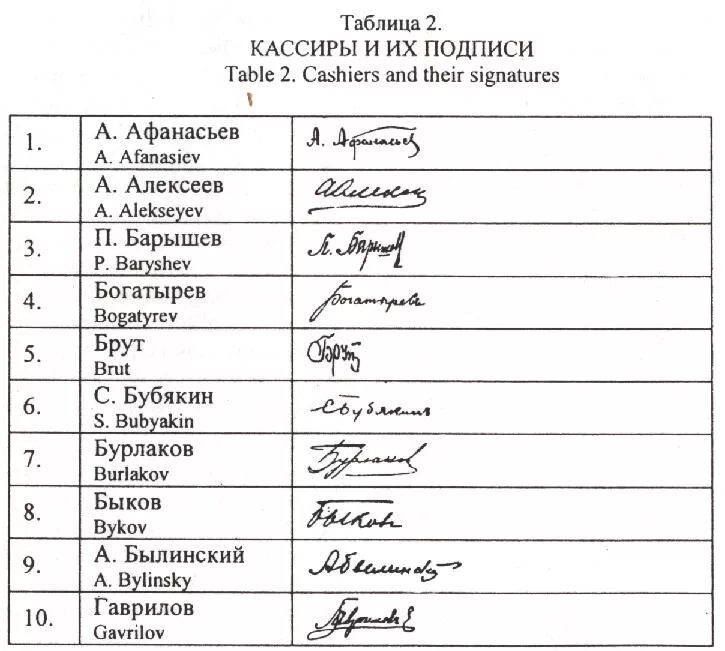 Таблица 2.
КАССИРЫ И ИХ ПОДПИСИ
Table 2. Cashiers and their signatures
1. А. Афанасьев А. Афанасьев
A. Afanasiev
2. А. Алексеев
A. Alekseyev
3. П. Барышев П. Барышев
P. Baryshev
4. Богатырев Богатыревъ
Bogatyrev
5. Брут Брут
Brut
6. С. Бубякин С Бубякинъ
S. Bubyakin
7. Бурлаков Бурлаков
Burlakov
8. Быков Быковъ
Bykov
9. А. Былинский
A. Bylinsky
10. Гаврилов
Gavrilov